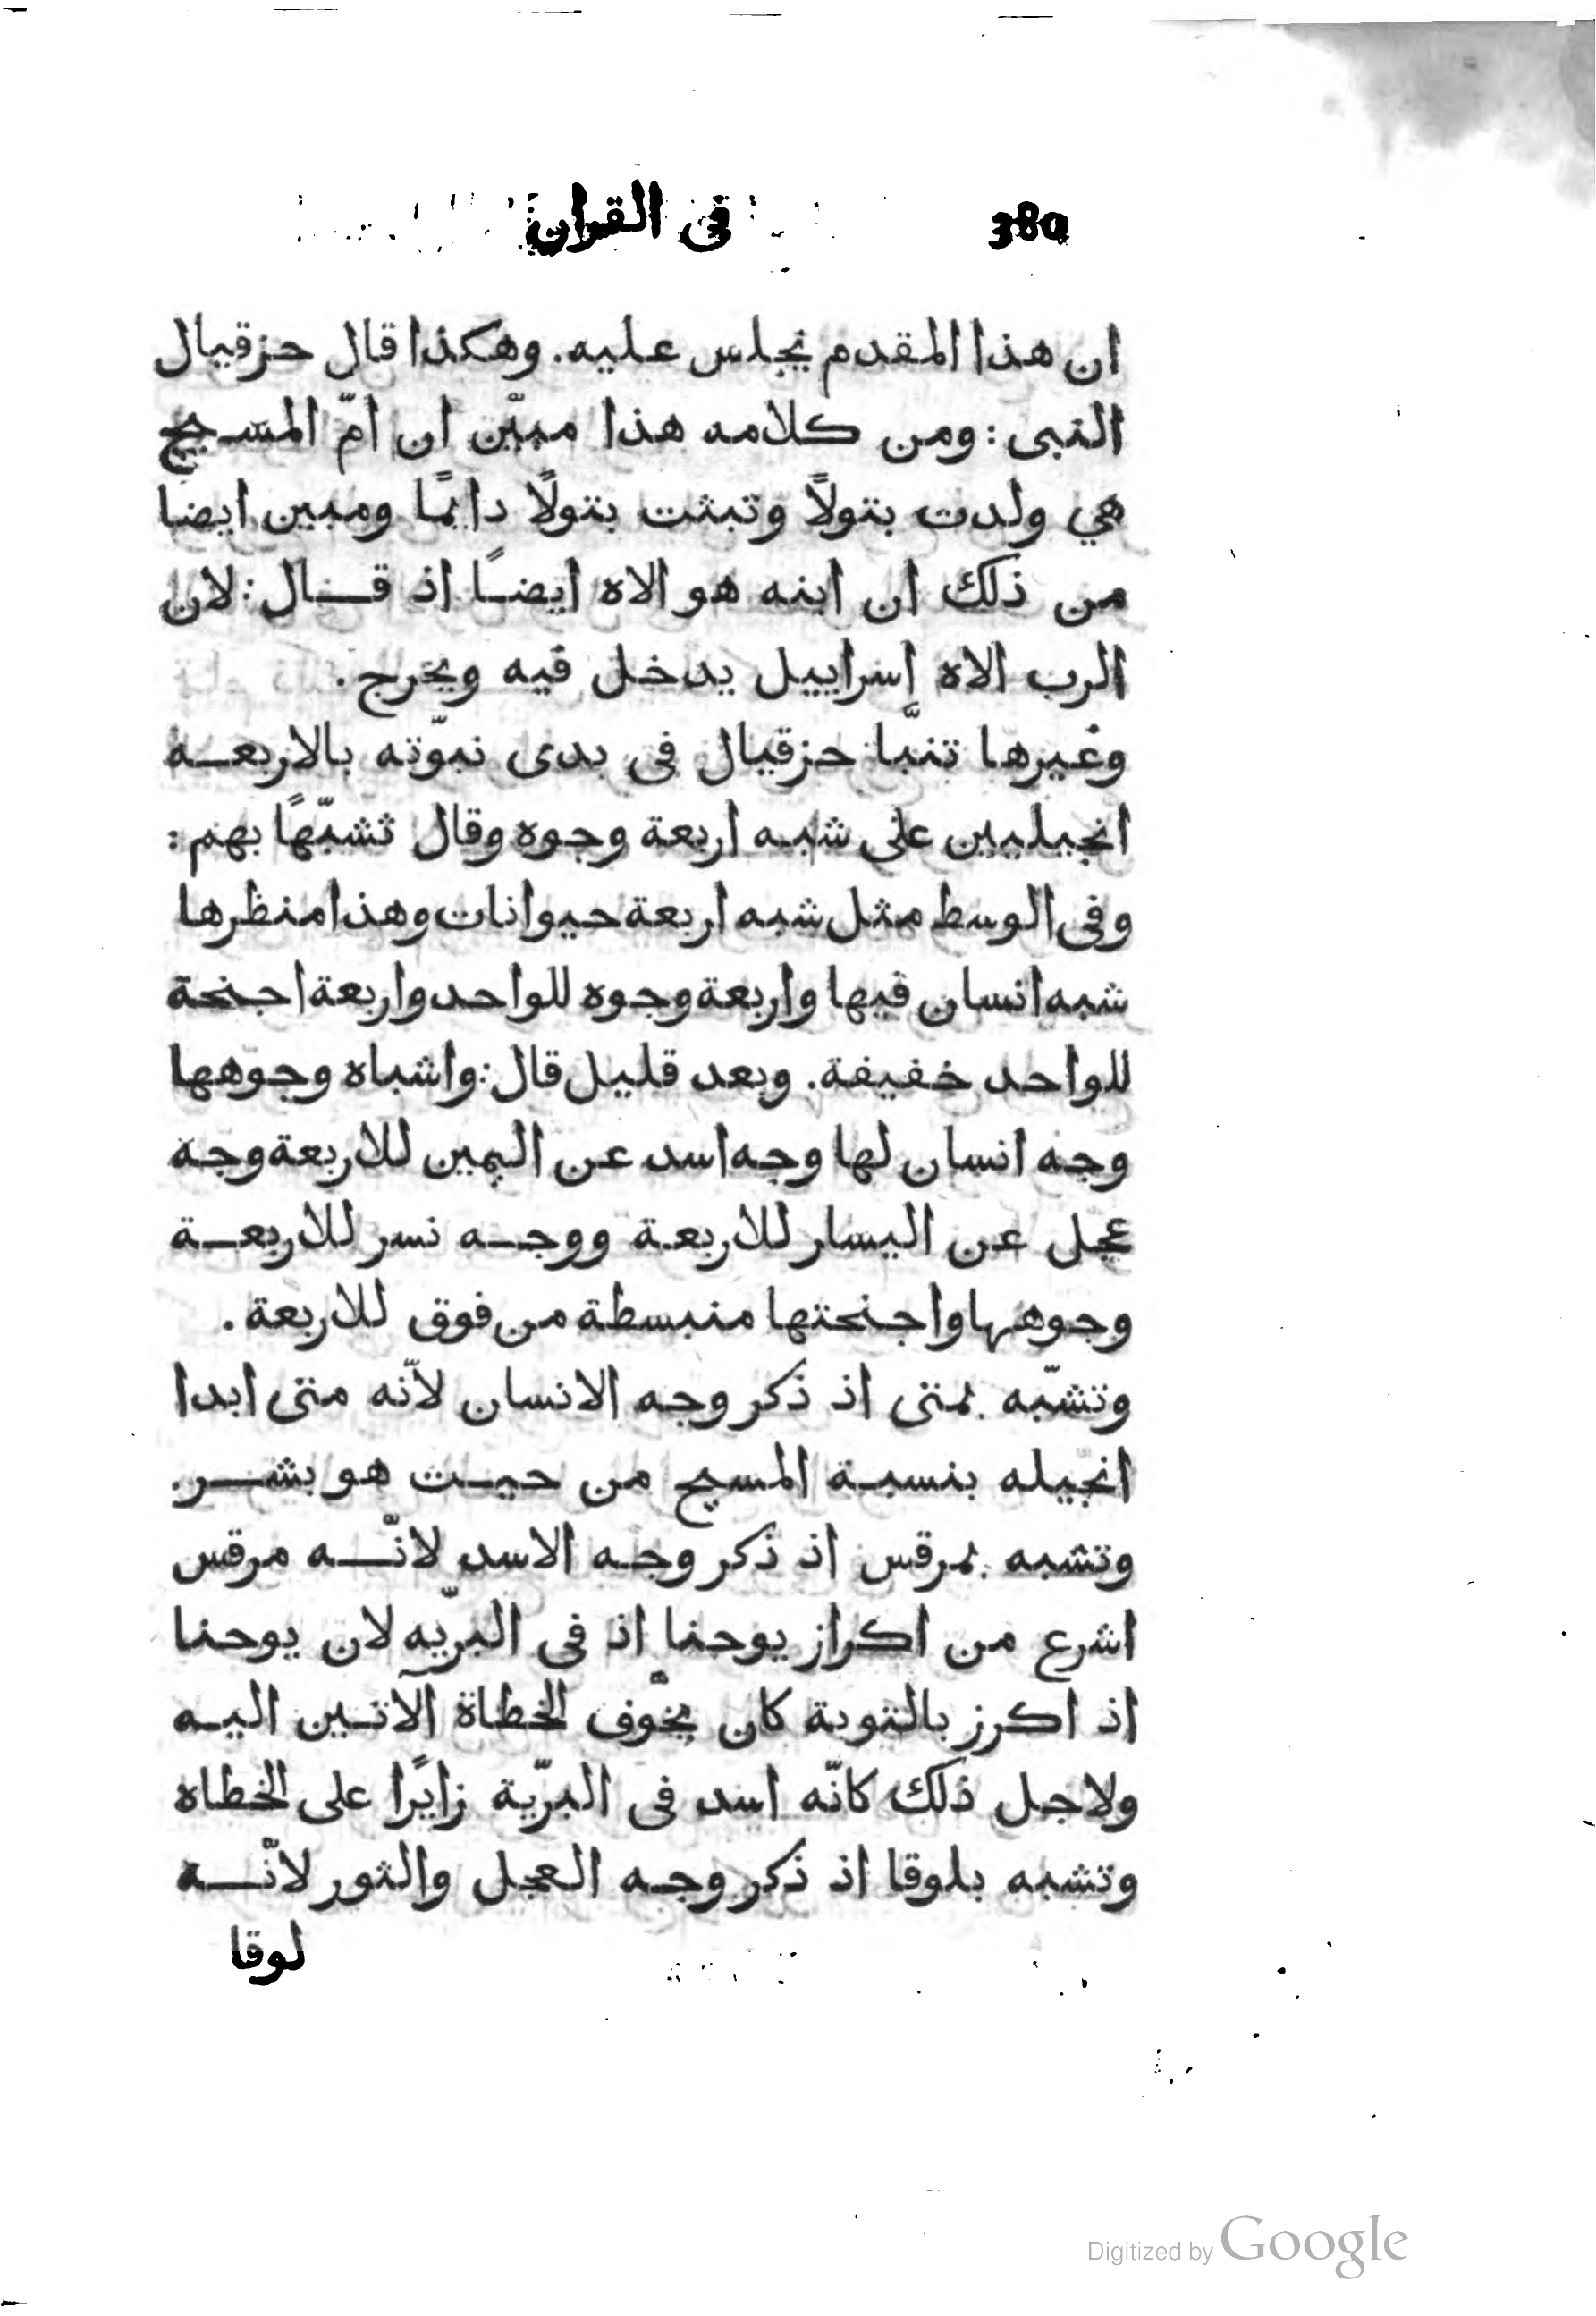 380
فى القران
ان هذا المقدم يجلس عليه. وهكذا قال حزقيال
النبى: ومن كلامه هذا مبيّن ان امّ المسيح
هي ولدت بتولاً وتبثت بتولاً دايمًا ومبين ايضا
من ذلك ان ابنه هو الاه ايضـًا اذ قـال: لان
الرب الاه إسراييل يدخل فيه ويخرج.
وغيرها تنبّا حزقيال فى بدى نبوّته بالاربعـة
انجيليين على شبه اربعة وجوه وقال تشبّهًا بهم:
وفى الوسط مثل شبه اربعة حيوانات وهذا منظرها
شبه انسان فيها واربعة وجوه للواحد واربعة اجنحة
للواحد خفيفة. وبعد قليل قال: واشباه وجوهها
وجه انسان لها وجه اسد عن اليمين للاربعة وجه
عجل عن اليسار للاربعة ووجـه نسر للاربعـة
وجوهها واجنحتها منبسطة من فوق للاربعة.
وتشبّه بمتى اذ ذكر وجه الانسان لانّه متى ابدا
انجيله بنسبـة المسيح من حيـث هو بشـر.
وتشبه بمرقس اذ ذكر وجـه الاسد لانّـه مرقس
اشرع من اكراز يوحنا اذ فى البرّيه لان يوحنا
اذ اكرز بالتوبة كان يخّوف الخطاة الآتـين اليـه
ولاجل ذلك كانّه اسد فى البرّية زايرًا على الخطاه
وتشبه بلوقا اذ ذكر وجـه العجل والثور لانّـه
لوقا
Digitized by Google